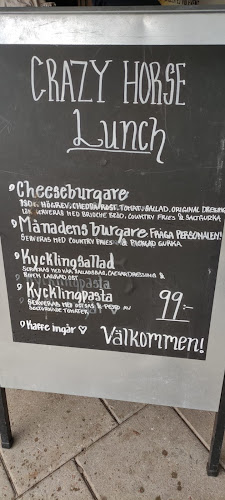 CRAZY HORSE
Lunch
Cheeseburgare
180g HÖGREV, CHEDDAROST, TOMAT, SALLAD, ORIGINAL DRESSING
SERVERAS MED BRIOCHE BRÖD, COUNTRY FRIES & SALTGURKA
Månadens burgare FRÅGA PERSONALEN!
SERVERAS MED COUNTRY FRIES & PICKLAD GURKA
Kycklingsallad
SERVERAS MED VÅR SALLADSBAS, CAESARDRESSING &
RIKTIG LAGRAD OST
Kycklingpasta
SERVERAS MED OSTSÅS & PEPP AV
SOLTORKADE TOMATER
99:-
Kaffe ingår ♡
Välkommen!